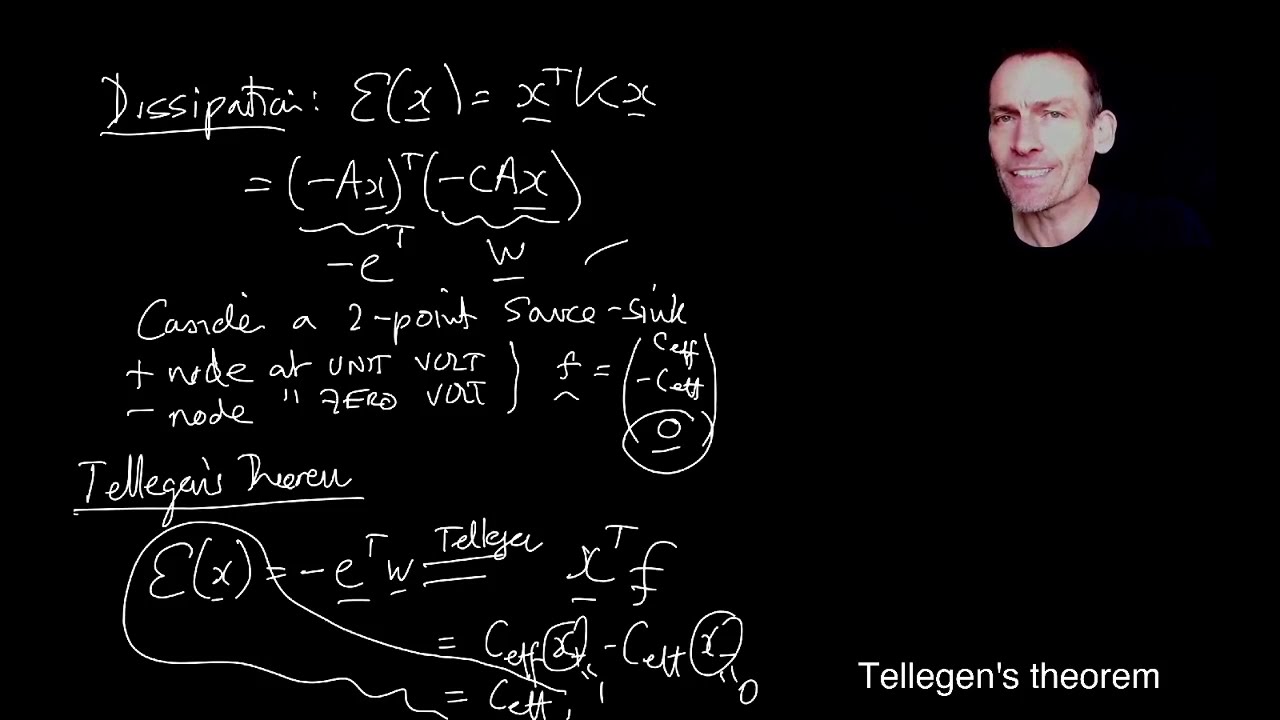 Dissipation: Ɛ(x) = xᵀKx
= (-Ax)ᵀ(-CAx)
-eᵀ w
Consider a 2-point source-sink
+ node at UNIT VOLT
- node " ZERO VOLT
f = (Ceff
-Ceff
0)
Tellegen's Theorem
Ɛ(x) = -eᵀw = Tellegen xᵀf
= Ceff x₊ - Ceff x₋
" 1 " 0
= Ceff
Tellegen's theorem